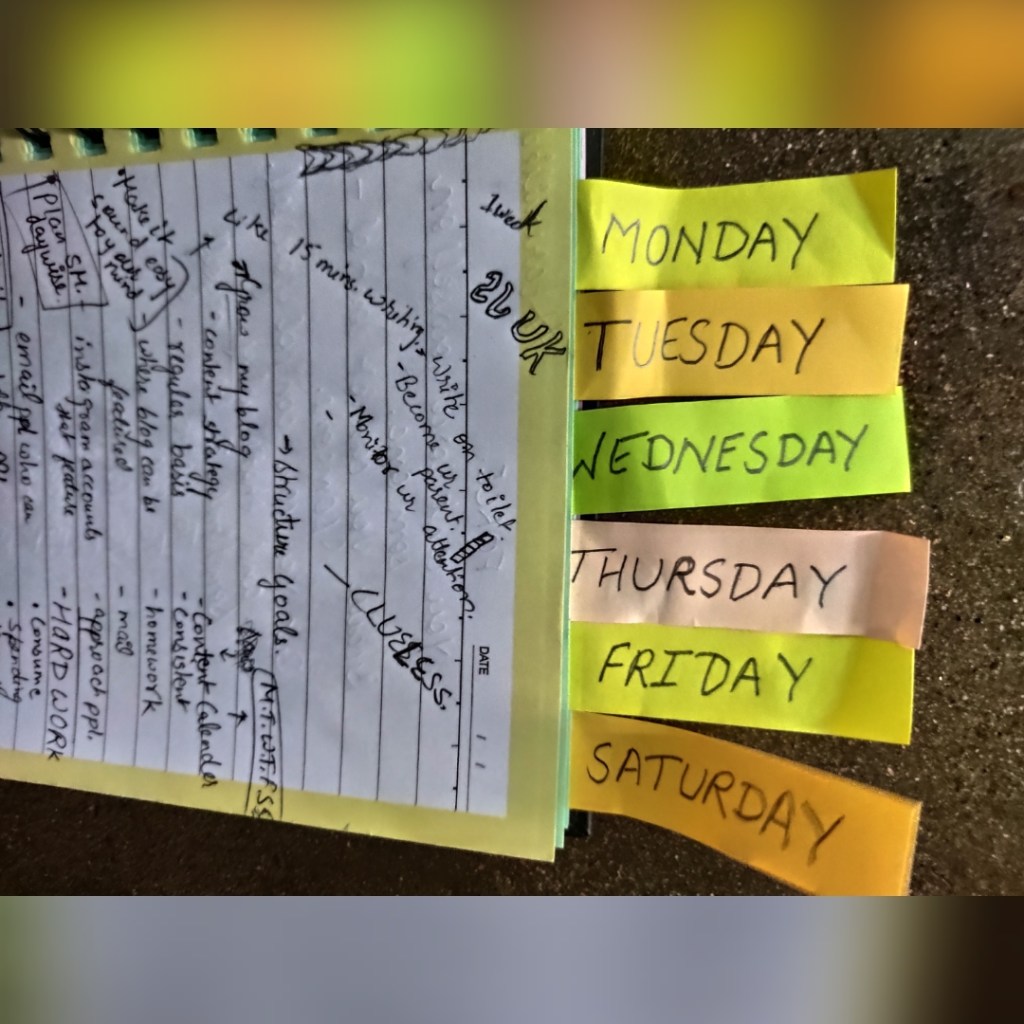 MONDAY
TUESDAY
WEDNESDAY
THURSDAY
FRIDAY
SATURDAY
DATE
1 week
15 mins. writing.
- write on toilet.
- Become ur parent.
- Monitor ur attention.
- CLUELESS.
→ Structure Goals.
Like my blog
- content strategy
- Content Calender
- regular basis
- Consistent
- where blog can be
featured
- homework
- mail
instagram accounts
that feature
- approach ppl.
- HARD WORK
- email ppl who can
• Consume
• Spending
Make it
sound easy
Plan SM.
daywise.